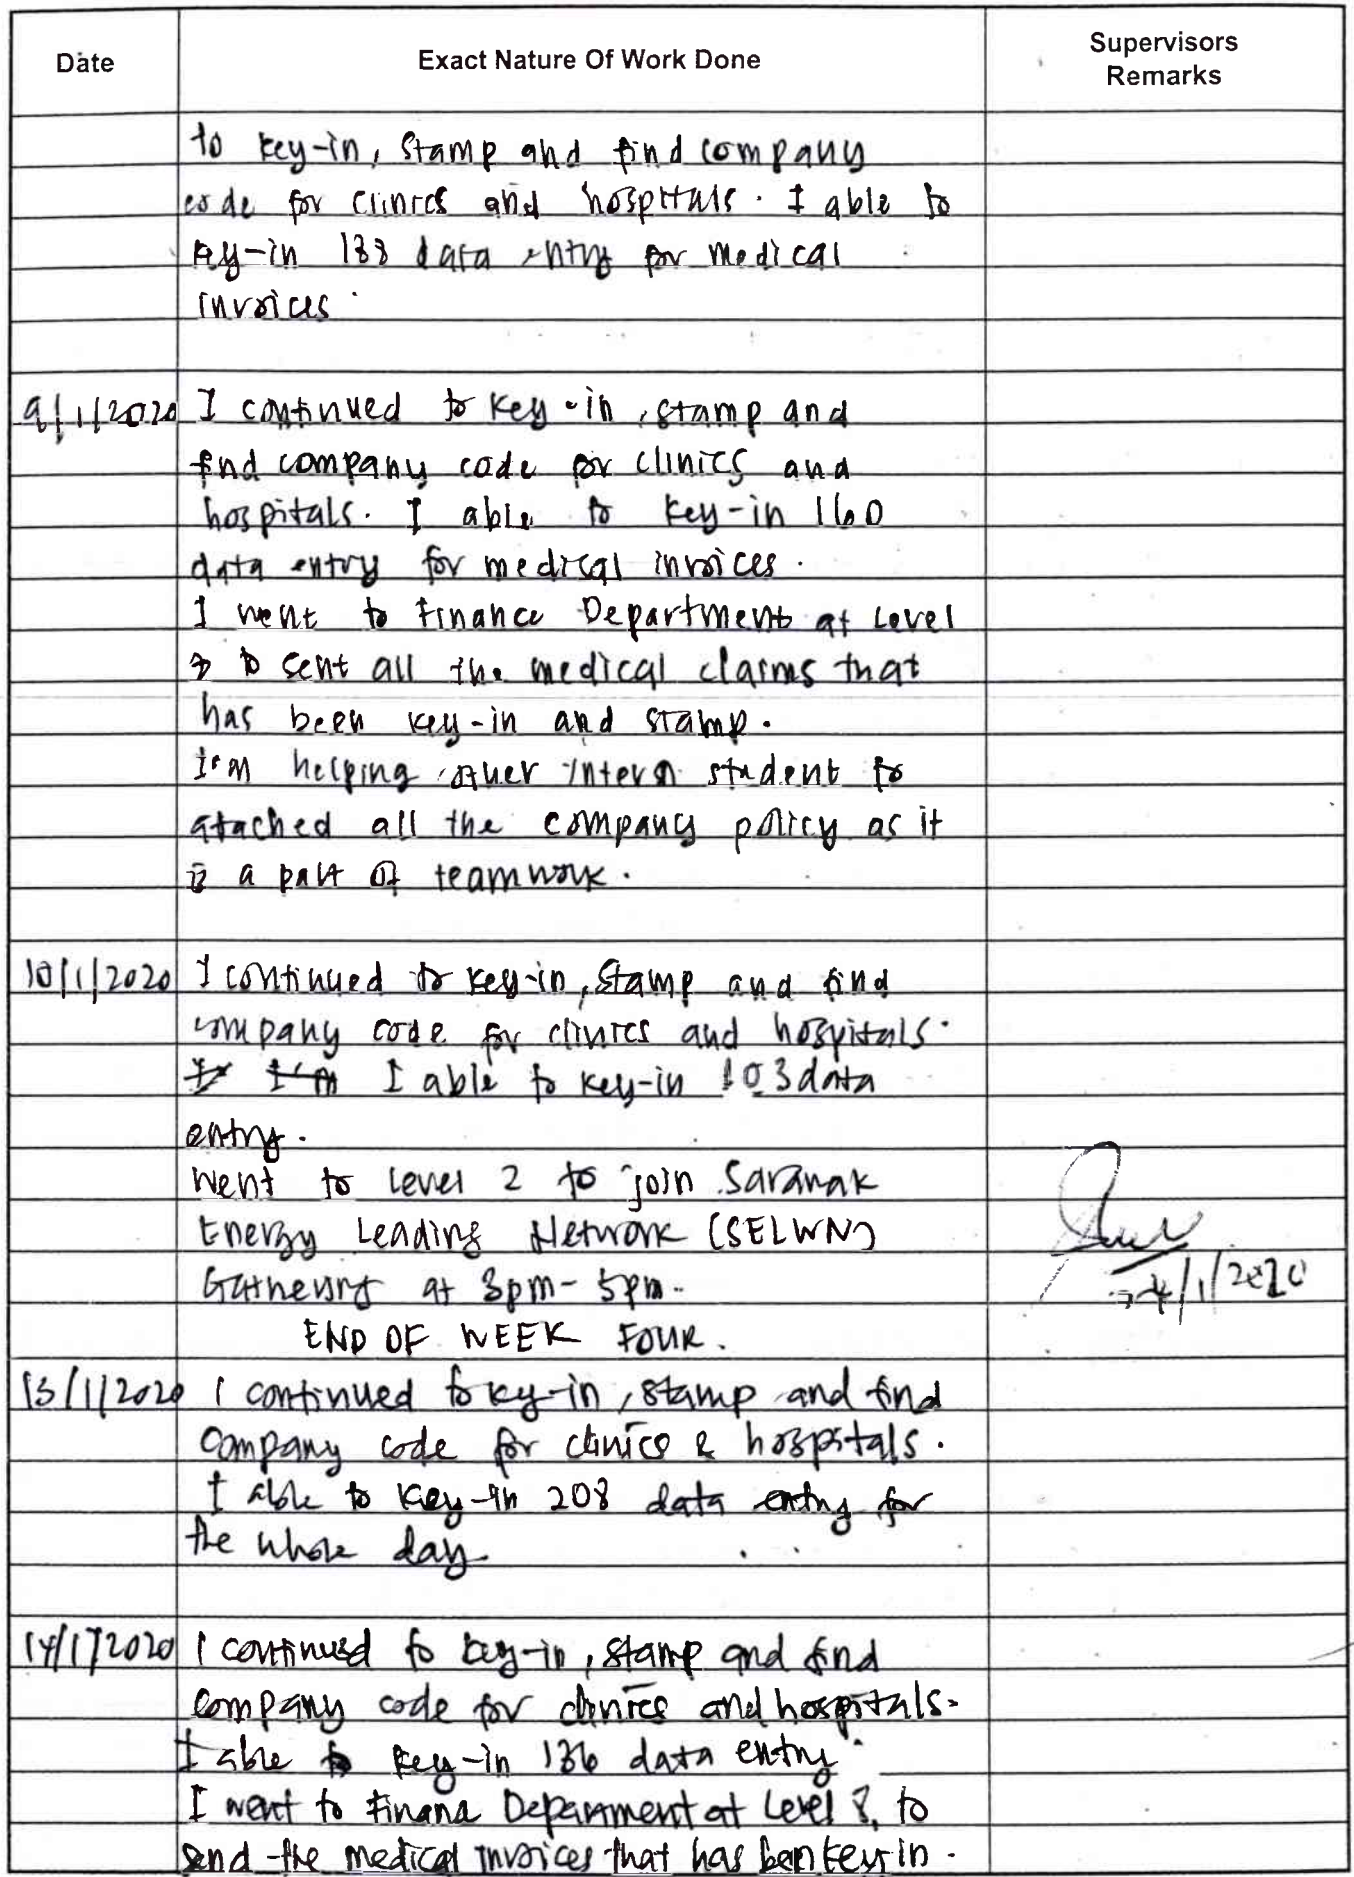 Date
Exact Nature Of Work Done
Supervisors
Remarks
to key-in, stamp and find company
code for clinics and hospitals. I able to
key-in 138 data entry for medical
invoices.
9/1/2020 I continued to key-in, stamp and
find company code for clinics and
hospitals. I able to key-in 160
data entry for medical invoices.
I went to Finance Department at Level
to sent all the medical claims that
has been key-in and stamp.
I'm helping other intern student to
atached all the company policy as it
is a part of teamwork.
10/1/2020 I continued to key-in, stamp and find
company code for clinics and hospitals.
I'm I able to key-in 103 data
entry.
Went to Level 2 to join Sarawak
Energy Leading Network (SELWN)
Gathering at 3pm-5pm.
END OF WEEK FOUR.
/1/2020
13/1/2020 I continued to key-in, stamp and find
company code for clinics & hospitals.
I able to key-in 208 data entry for
the whole day.
14/1/2020 I continued to key-in, stamp and find
company code for clinics and hospitals.
I able to key-in 136 data entry.
I went to Finance Department at Level 8, to
send the medical invoices that has been key in.